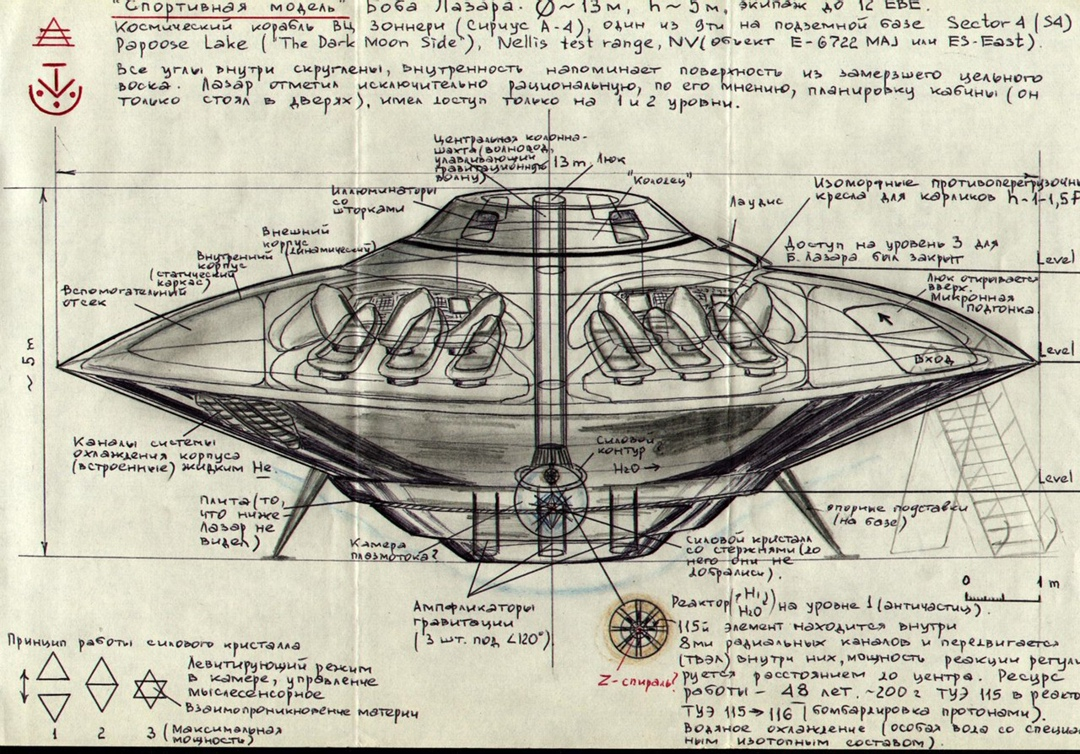 "Спортивная модель" Боба Лазара. Ø~13м, h~5м, экипаж до 12 ЕВЕ.
Космический корабль ВЦ Зоннери (Сириус А-4), один из 9ти на подземной базе Sector 4 (S4)
Papoose Lake ("The Dark Moon Side"), Nellis test range, NV (объект E-6722 MAJ или ES-East).
Все углы внутри скруглены, внутренность напоминает поверхность из замерзшего цельного
воска. Лазар отметил исключительно рациональную, по его мнению, планировку кабины (он
только стоял в дверях), имел доступ только на 1 и 2 уровни.
Центральная колонна-
шахта (волновод,
улавливающий
гравитационную
волну)
13 m
Люк
"Колодец"
Иллюминаторы
со
шторками
Лаудис
Изоморфные противоперегрузочн
кресла для карликов h~1-1,5
Внешний
корпус
(динамический)
Внутренний
корпус
(статический
каркас)
Вспомогательный
отсек
Доступ на уровень 3 для
Б. Лазара был закрыт
Level
Люк открывается
вверх.
Микронная
подгонка.
Level
Вход
~ 5 m
Каналы системы
охлаждения корпуса
(встроенные) жидким He.
Силовой
контур
H2O →
Level
Плита (то,
что ниже
Лазар не
видел)
опорные подставки
(на базе)
Камера
плазмотока?
Силовой кристалл
со стержнями (до
него они не
добрались).
Амплификаторы
гравитации
(3 шт. под ∠120°)
0 1 m
Реактор (H1, H2O) на уровне 1 (античастиц).
115й элемент находится внутри
8ми радиальных каналов и передвигается
(ТВЭЛ) внутри них, мощность реакции регули
руется расстоянием до центра. Ресурс
работы - 48 лет. ~200 г ТУЭ 115 в реакто
ТУЭ 115→116 (бомбардировка протонами).
Водяное охлаждение (особая вода со специа
ным изотопным составом).
Z-спираль?
Принцип работы силового кристалла
Левитирующий режим
в камере, управление
мыслесенсорное
Взаимопроникновение материи
1 2 3 (Максимальная
мощность)